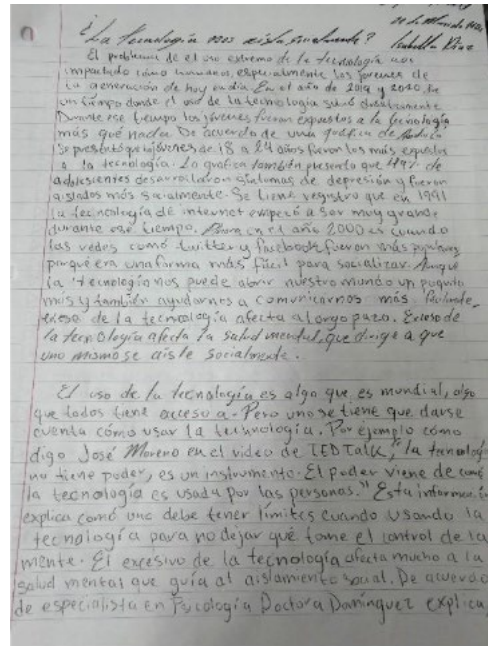 ¿La tecnología nos aisla socialmente? Isabella Diaz
El problema de el uso extremo de la tecnología nos
impactado cómo humanos, especialmente los jovenes de
la generación de hoy en dia. En el año de 2019 y 2020, fue
un tiempo donde el uso de la tecnología subió drasticamente
Durante ese tiempo los jóvenes fueron expuestos a la tecnología
más qué nada. De acuerdo de una gráfica de
se presentó que jóvenes de 18 a 24 años fueron los más expuestos
a la tecnología. La grafica también presento que 49% de
adolescientes desarrollaron sintomas de depresión y fueron
aislados más socialmente. Se tiene registro que en 1991
la tecnología de internet empezó a ser muy grande
durante ese tiempo. en el año 2000 es cuando
las redes comó twitter y facebook fueron más populares
porqué era una forma más fácil para socializar. Aunque
la tecnología nos puede abrir nuestro mundo un poquito
más y también ayudarnos a comunicarnos más
exceso de la tecnología afecta a largo pazo. Exceso de
la tecnología afecta la salud mental, que dirige a que
uno mismo se aisle socialmente.
El uso de la tecnología es algo que es mundial, algo
que todos tiene acceso a. Pero uno se tiene que darse
cuenta cómo usar la tecnología. Por ejemplo como
digo José Moreno en el video de TEDTalk, "la tecnología
no tiene poder, es un instrumento. El poder viene de comó
la tecnología es usada por las personas." Esta información
explica comó uno debe tener límites cuando usando la
tecnología para no dejar qué tome el control de la
mente. El excesivo de la tecnología afecta mucho a la
salud mental que guía al aislamiento social. De acuerdo
de especialista en Psicología Doctora Domínguez explica,